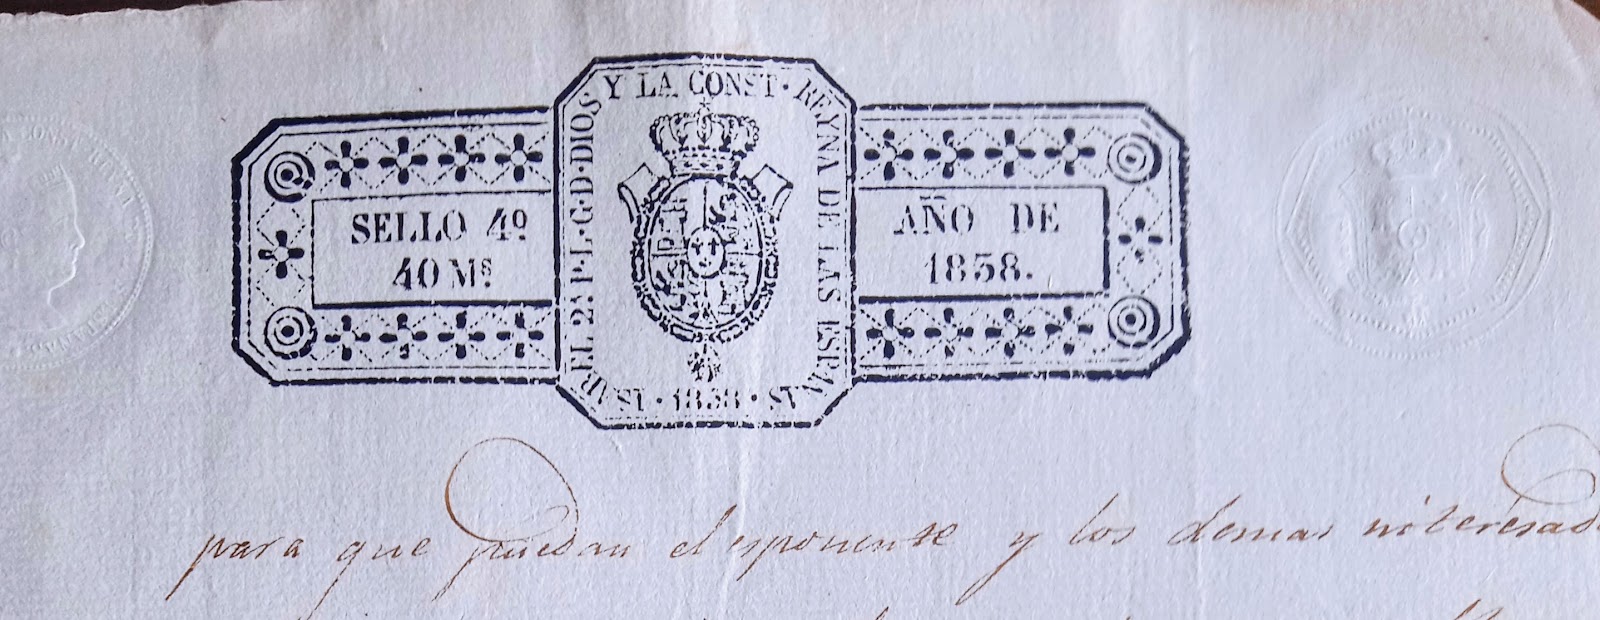 ISABEL 2ª P·L·G·D·DIOS Y LA CONST· REYNA DE LAS ESPAÑAS · 1838 ·
SELLO 4º
40 Mˢ
AÑO DE
1838.
para que puedan el esponente y los demas interesad